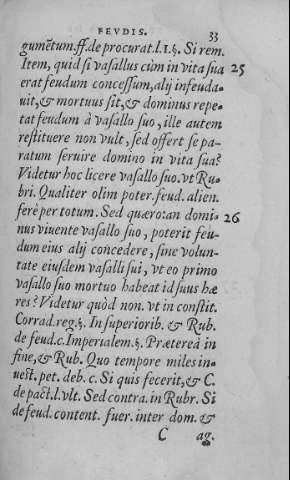 FEVDIS. 33
gumẽtum.ff.de procurat.l.1.§. Si rem.
Item, quid si vasallus cùm in vita sua 25
erat feudum concessum, alij infeuda-
uit, & mortuus sit, & dominus repe-
tat feudum à vasallo suo, ille autem
restituere non vult, sed offert se pa-
ratum seruire domino in vita sua?
Videtur hoc licere vasallo suo. vt Ru-
bri. Qualiter olim poter. feud. alien.
ferè per totum. Sed quæro: an domi- 26
nus viuente vasallo suo, poterit feu-
dum eius alij concedere, sine volun-
tate eiusdem vasalli sui, vt eo primo
vasallo suo mortuo habeat id suus hæ
res? Videtur quòd non. vt in constit.
Corrad. reg.§. In superiorib. & Rub.
de feud. c. Imperialem.§. Præterea in
fine, & Rub. Quo tempore miles in-
uest. pet. deb. c. Si quis fecerit, & C.
de pact.l.vlt. Sed contra. in Rubr. Si
de feud. content. fuer. inter dom. &
C ag.